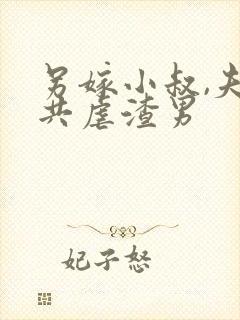 另嫁小叔,夫
共虐渣男
妃子怒